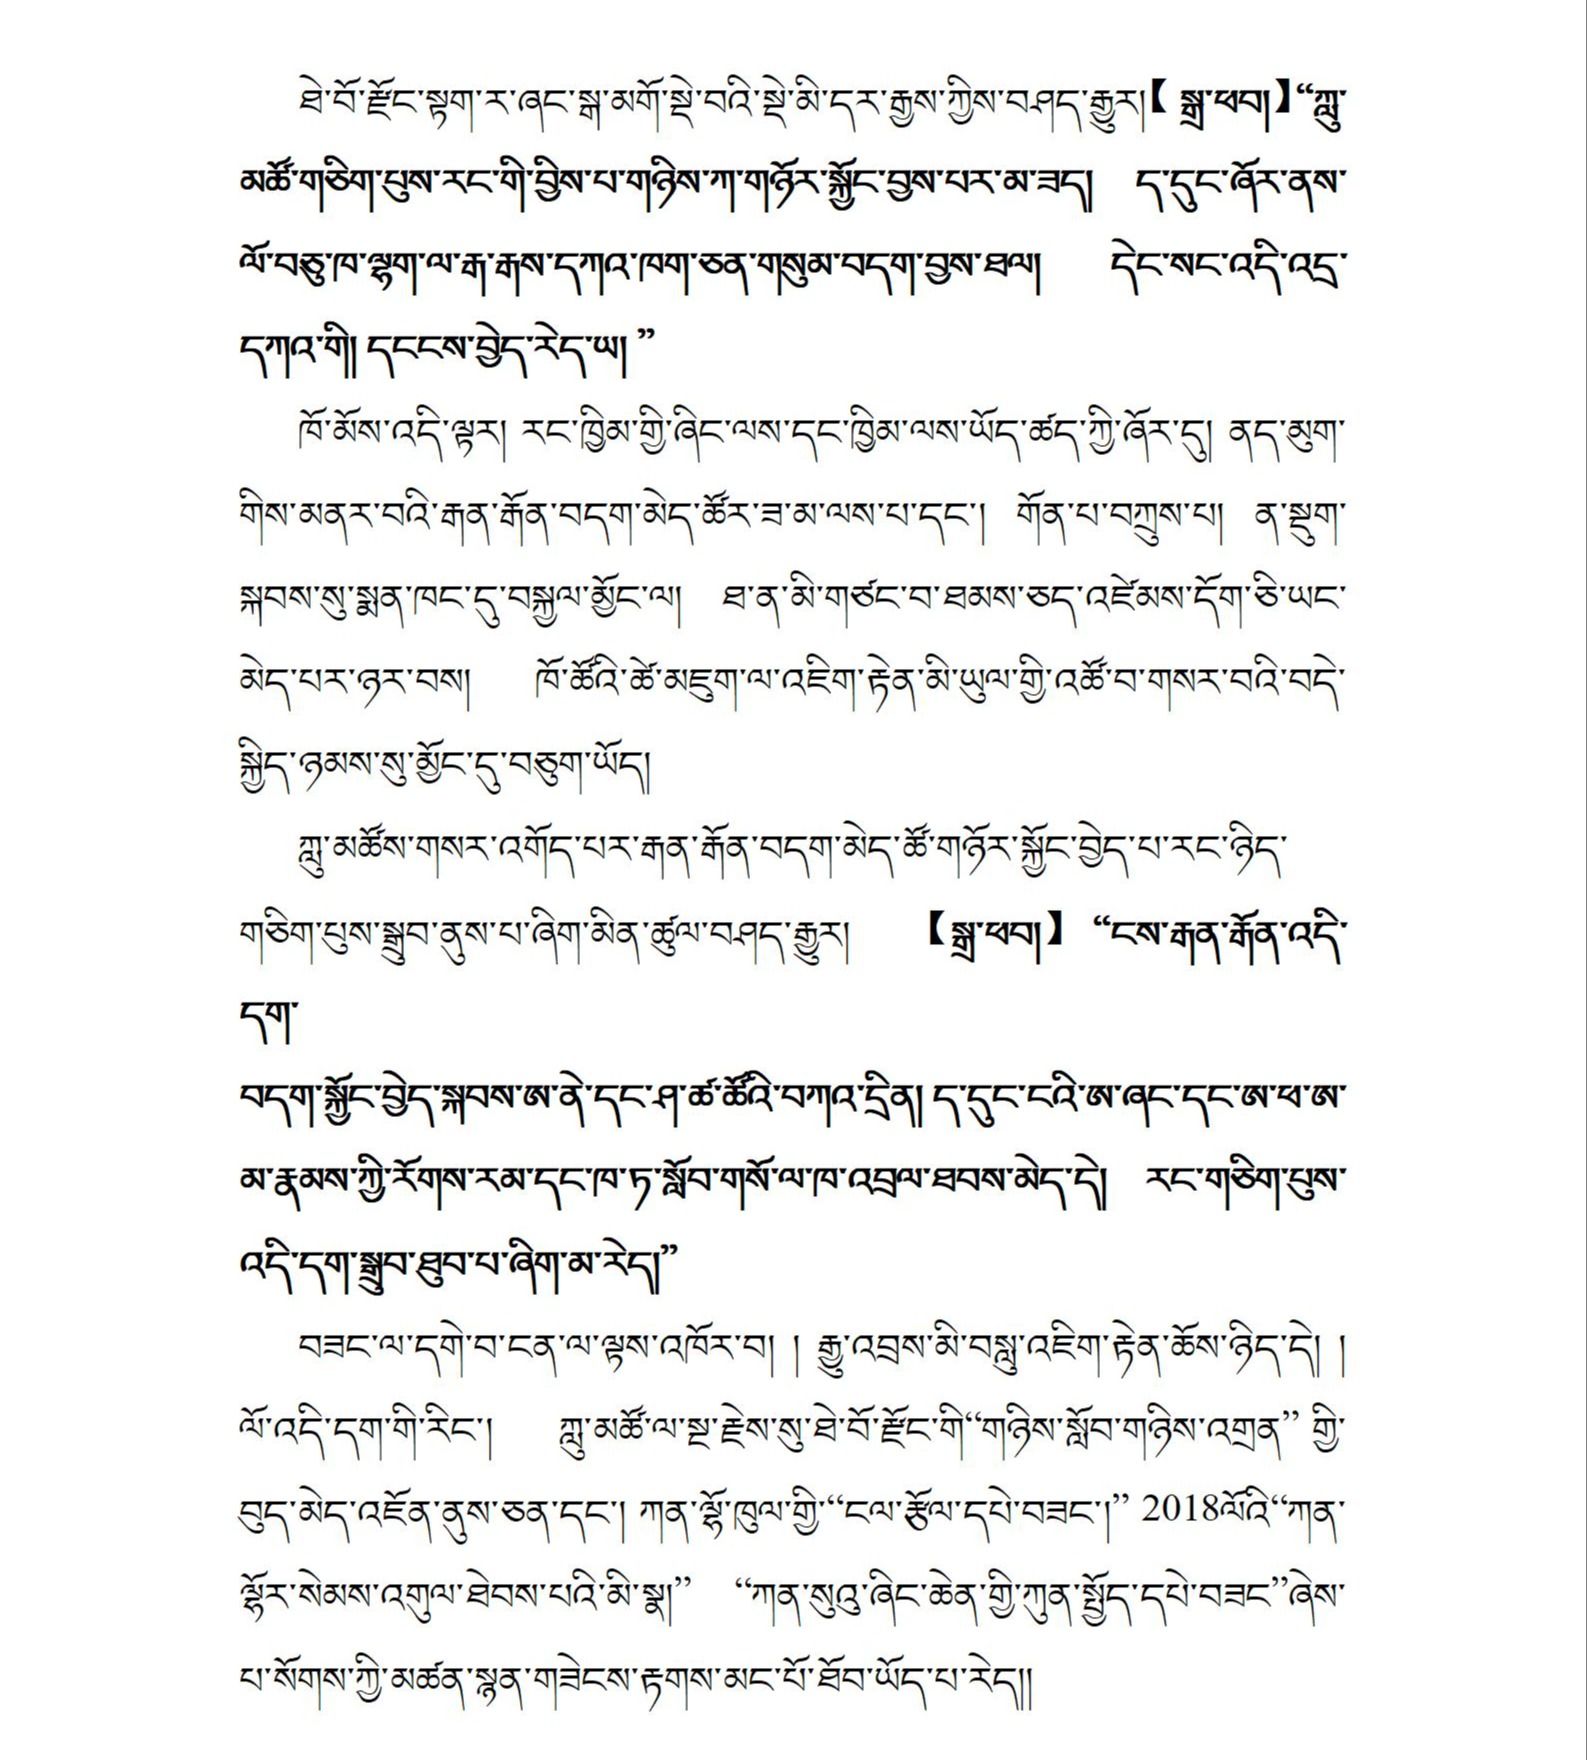 ཐེ་བོ་རྫོང་སྟག་ར་ཞང་སྒ་མགོ་སྡེ་བའི་སྡེ་མི་དར་རྒྱས་ཀྱིས་བཤད་རྒྱུར།【 སྒྲ་ཕབ།】“ཀླུ་
མཚོ་གཅིག་པུས་རང་གི་བྱིས་པ་གཉིས་ཀ་གཉོར་སྐྱོང་བྱས་པར་མ་ཟད།  ད་དུང་ཞོར་ནས་
ལོ་བཅུ་ཁ་ལྷག་ལ་རྒ་རྒས་དཀའ་ཁག་ཅན་གསུམ་བདག་བྱས་ཐལ།   དེང་སང་འདི་འདྲ་
དཀའ་གི། དངངས་བྱེད་རེད་ཡ། ”
ཁོ་མོས་འདི་ལྟར། རང་ཁྱིམ་གྱི་ཞིང་ལས་དང་ཁྱིམ་ལས་ཡོད་ཚད་ཀྱི་ཞོར་དུ། ནད་མུག་
གིས་མནར་བའི་རྒན་རྒོན་བདག་མེད་ཚོར་ཟ་མ་ལས་པ་དང་།  གོན་པ་བཀྲུས་པ།  ན་སྡུག་
སྐབས་སུ་སྨན་ཁང་དུ་བསྐྱལ་མྱོང་ལ།  ཐ་ན་མི་གཙང་བ་ཐམས་ཅད་འཛེམས་དོག་ཅི་ཡང་
མེད་པར་ཉར་བས།   ཁོ་ཚོའི་ཚེ་མཇུག་ལ་འཇིག་རྟེན་མི་ཡུལ་གྱི་འཚོ་བ་གསར་བའི་བདེ་
སྐྱིད་ཉམས་སུ་མྱོང་དུ་བཅུག་ཡོད།
ཀླུ་མཚོས་གསར་འགོད་པར་རྒན་རྒོན་བདག་མེད་ཚོ་གཉོར་སྐྱོང་བྱེད་པ་རང་ཉིད་
གཅིག་པུས་སྒྲུབ་ནུས་པ་ཞིག་མིན་ཚུལ་བཤད་རྒྱུར།   【སྒྲ་ཕབ།】 “ངས་རྒན་རྒོན་འདི་
དག་
བདག་སྐྱོང་བྱེད་སྐབས་ཨ་ནེ་དང་ཤ་ཚ་ཚོའི་བཀའ་དྲིན། ད་དུང་ངའི་ཨ་ཞང་དང་ཨ་ཕ་ཨ་
མ་རྣམས་ཀྱི་རོགས་རམ་དང་ཁ་ཏ་སློབ་གསོ་ལ་ཁ་འབྲལ་ཐབས་མེད་དེ།  རང་གཅིག་པུས་
འདི་དག་སྒྲུབ་ཐུབ་པ་ཞིག་མ་རེད།”
བཟང་ལ་དགེ་བ་ངན་ལ་ལྟས་འཁོར་བ། ། རྒྱུ་འབྲས་མི་བསླུ་འཇིག་རྟེན་ཆོས་ཉིད་དེ། །
ལོ་འདི་དག་གི་རིང་།   ཀླུ་མཚོ་ལ་སྔ་རྗེས་སུ་ཐེ་བོ་རྫོང་གི“གཉིས་སློབ་གཉིས་འགྲན” གྱི་
བུད་མེད་འཇོན་ནུས་ཅན་དང་། ཀན་ལྷོ་ཁུལ་གྱི་“ངལ་རྩོལ་དཔེ་བཟང་།” 2018ལོའི“ཀན་
ལྷོར་སེམས་འགུལ་ཐེབས་པའི་མི་སྣ།”  “ཀན་སུའུ་ཞིང་ཆེན་གྱི་ཀུན་སྤྱོད་དཔེ་བཟང”ཞེས་
པ་སོགས་ཀྱི་མཚན་སྙན་གཟེངས་རྟགས་མང་པོ་ཐོབ་ཡོད་པ་རེད།།